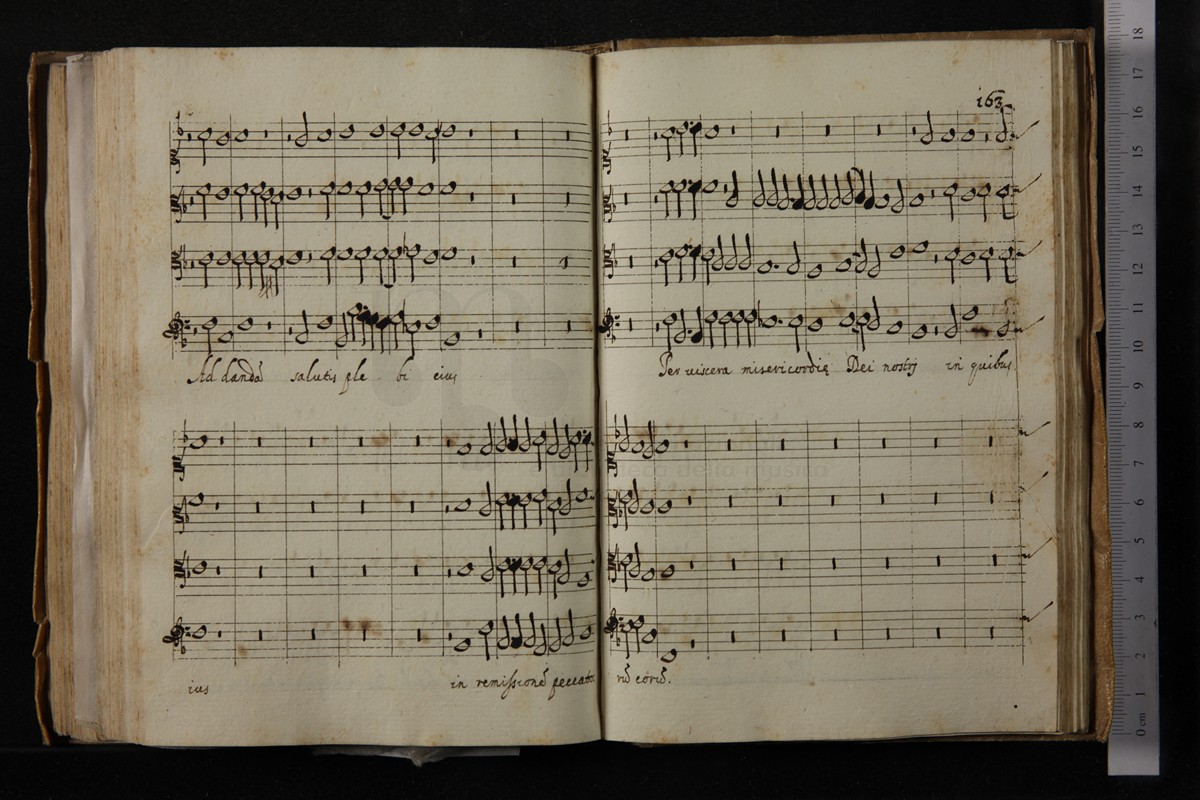 163
Ad dandā salutis ple bi eius
Per viscera misericordię Dei nostrj in quibus
ius in remissionē peccato
rū eorū.
museo internazionale e biblioteca della musica
18
17
16
15
14
13
12
11
10
9
8
7
6
5
4
3
2
1
0 cm